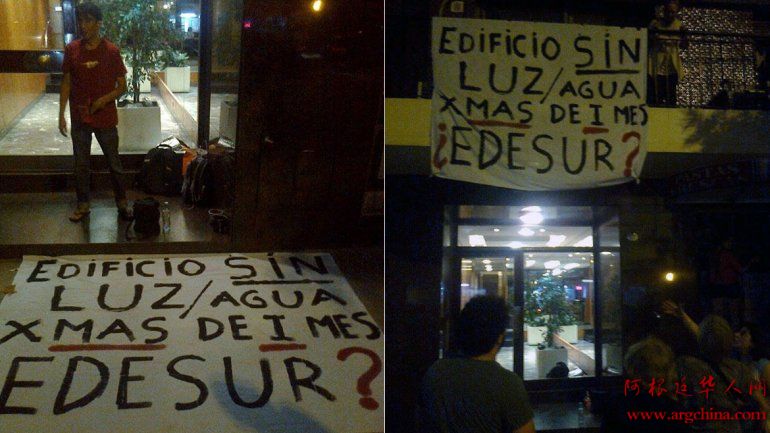 EDIFICIO SIN
LUZ/AGUA
X MAS DE I MES
EDESUR?
EDIFICIO SIN
LUZ/AGUA
X MAS DE I MES
¿EDESUR?
阿根廷华人网
www.argchina.com